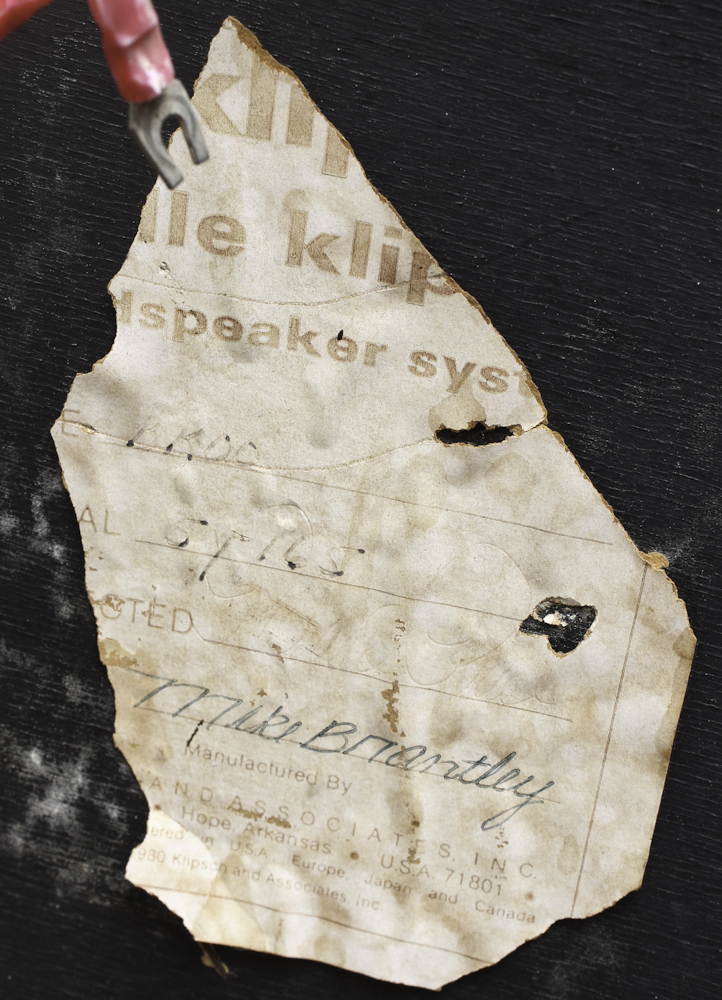 klip
lle klip
dspeaker syst
E BRDC
AL 5Y765
CTED
Mike Brantley
Manufactured By
AND ASSOCIATES, INC.
Hope, Arkansas • U.S.A. 71801
ered in U.S.A., Europe, Japan and Canada
980 Klipsch and Associates, Inc.